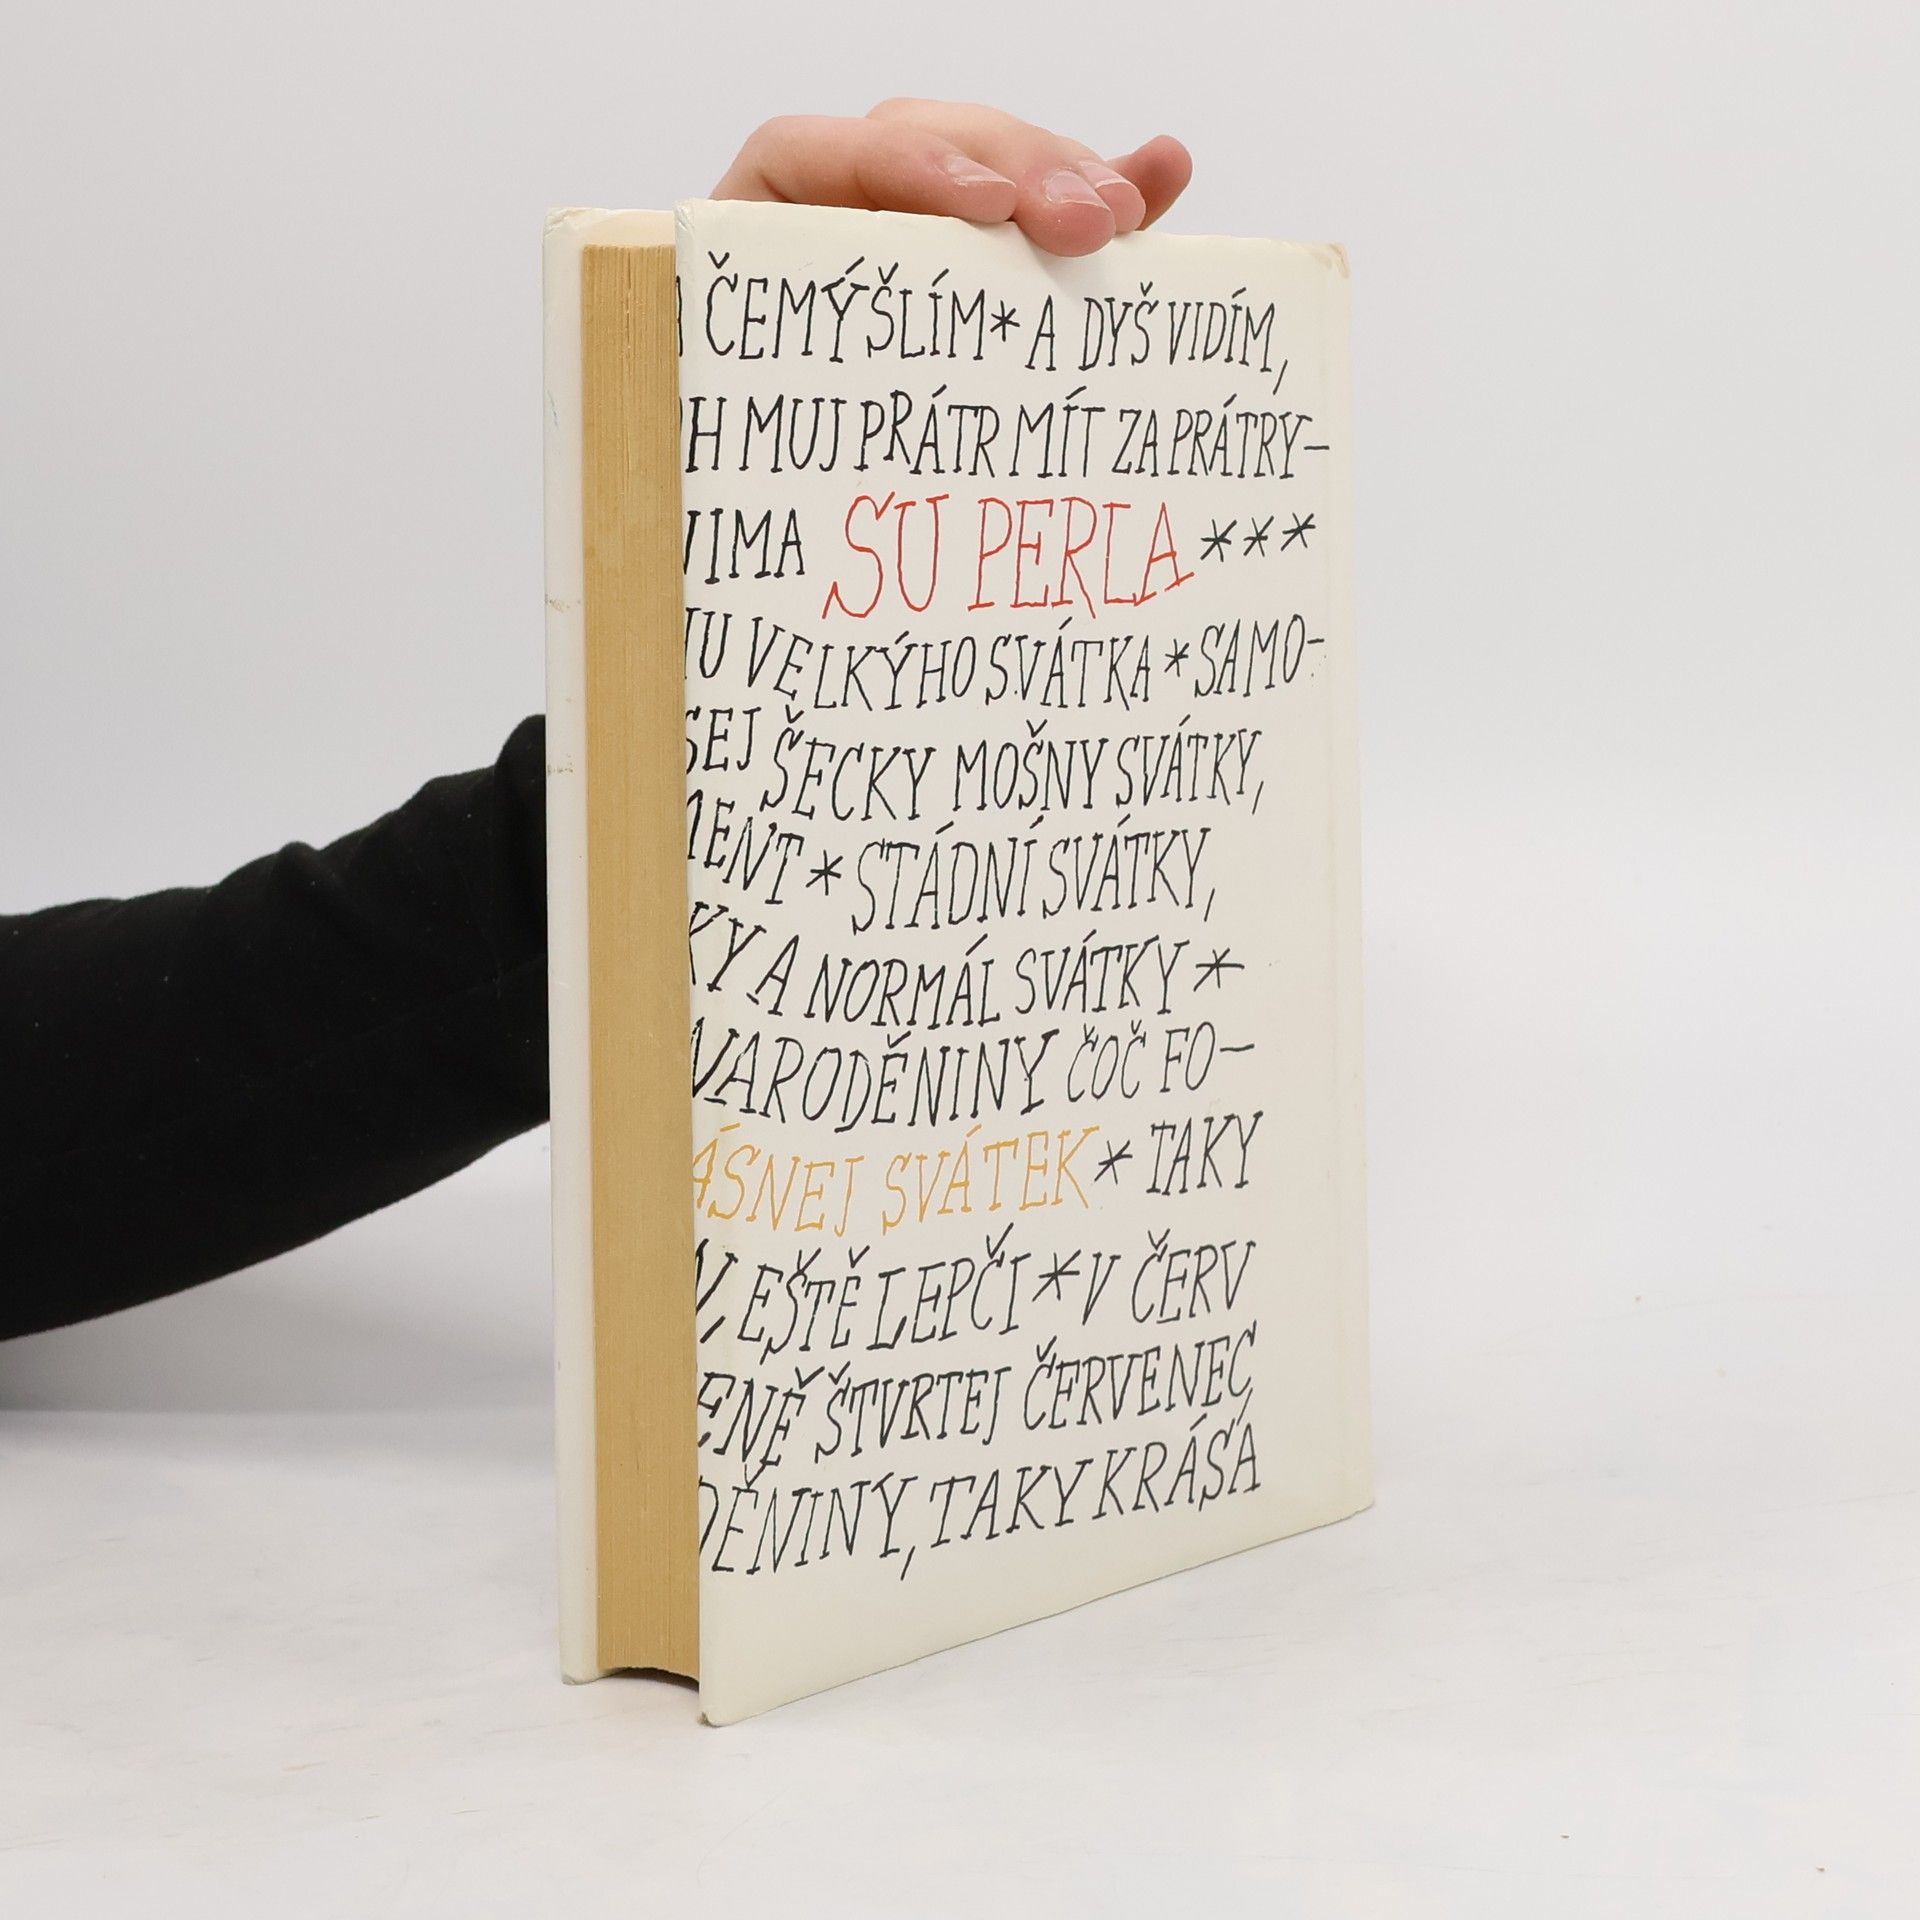 ČEMÝŠLÍM * A DYŠ VIDÍM,
MUJ PRÁTR MÍT ZA PRÁTRY-
SU PERLA * * *
VELKÝHO SVÁTKA * SAMO-
ŠECKY MOŠNY SVÁTKY,
* STÁDNÍ SVÁTKY,
A NORMÁL SVÁTKY *
NARODĚNINY ČOČ FO-
SVÁTEK * TAKY
EŠTĚ LEPČI * V ČERV
ŠTVRTEJ ČERVENEC,
TAKY KRÁSA